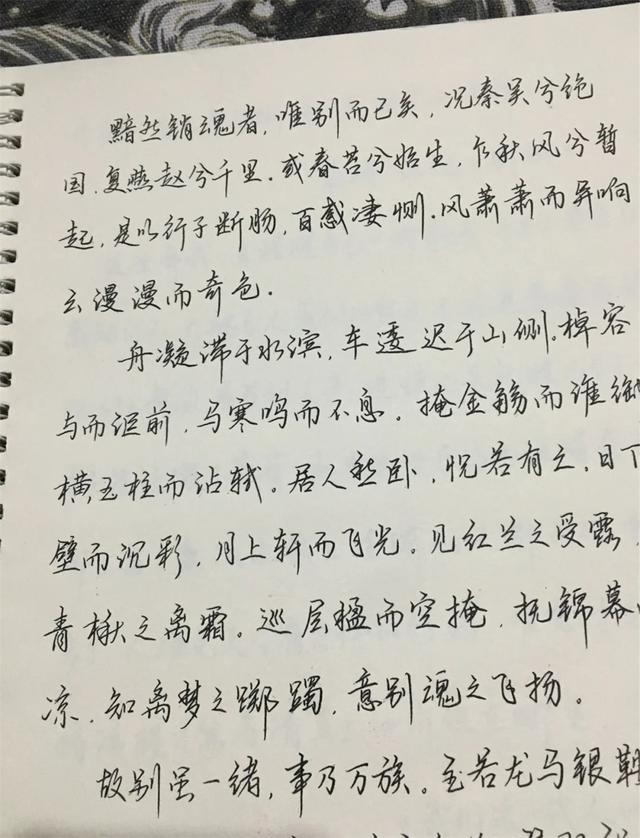 黯然销魂者，唯别而已矣，况秦吴兮绝
国，复燕赵兮千里。或春苔兮始生，乍秋风兮暂
起，是以行子断肠，百感凄恻。风萧萧而异响
云漫漫而奇色。
舟凝滞于水滨，车逶迟于山侧。棹容
与而讵前，马寒鸣而不息。掩金觞而谁御
横玉柱而沾轼。居人愁卧，怳若有亡，日下
壁而沉彩，月上轩而飞光。见红兰之受露，
青楸之离霜。巡层楹而空掩，抚锦幕
凉，知离梦之踯躅，意别魂之飞扬。
故别虽一绪，事乃万族。至若龙马银鞍